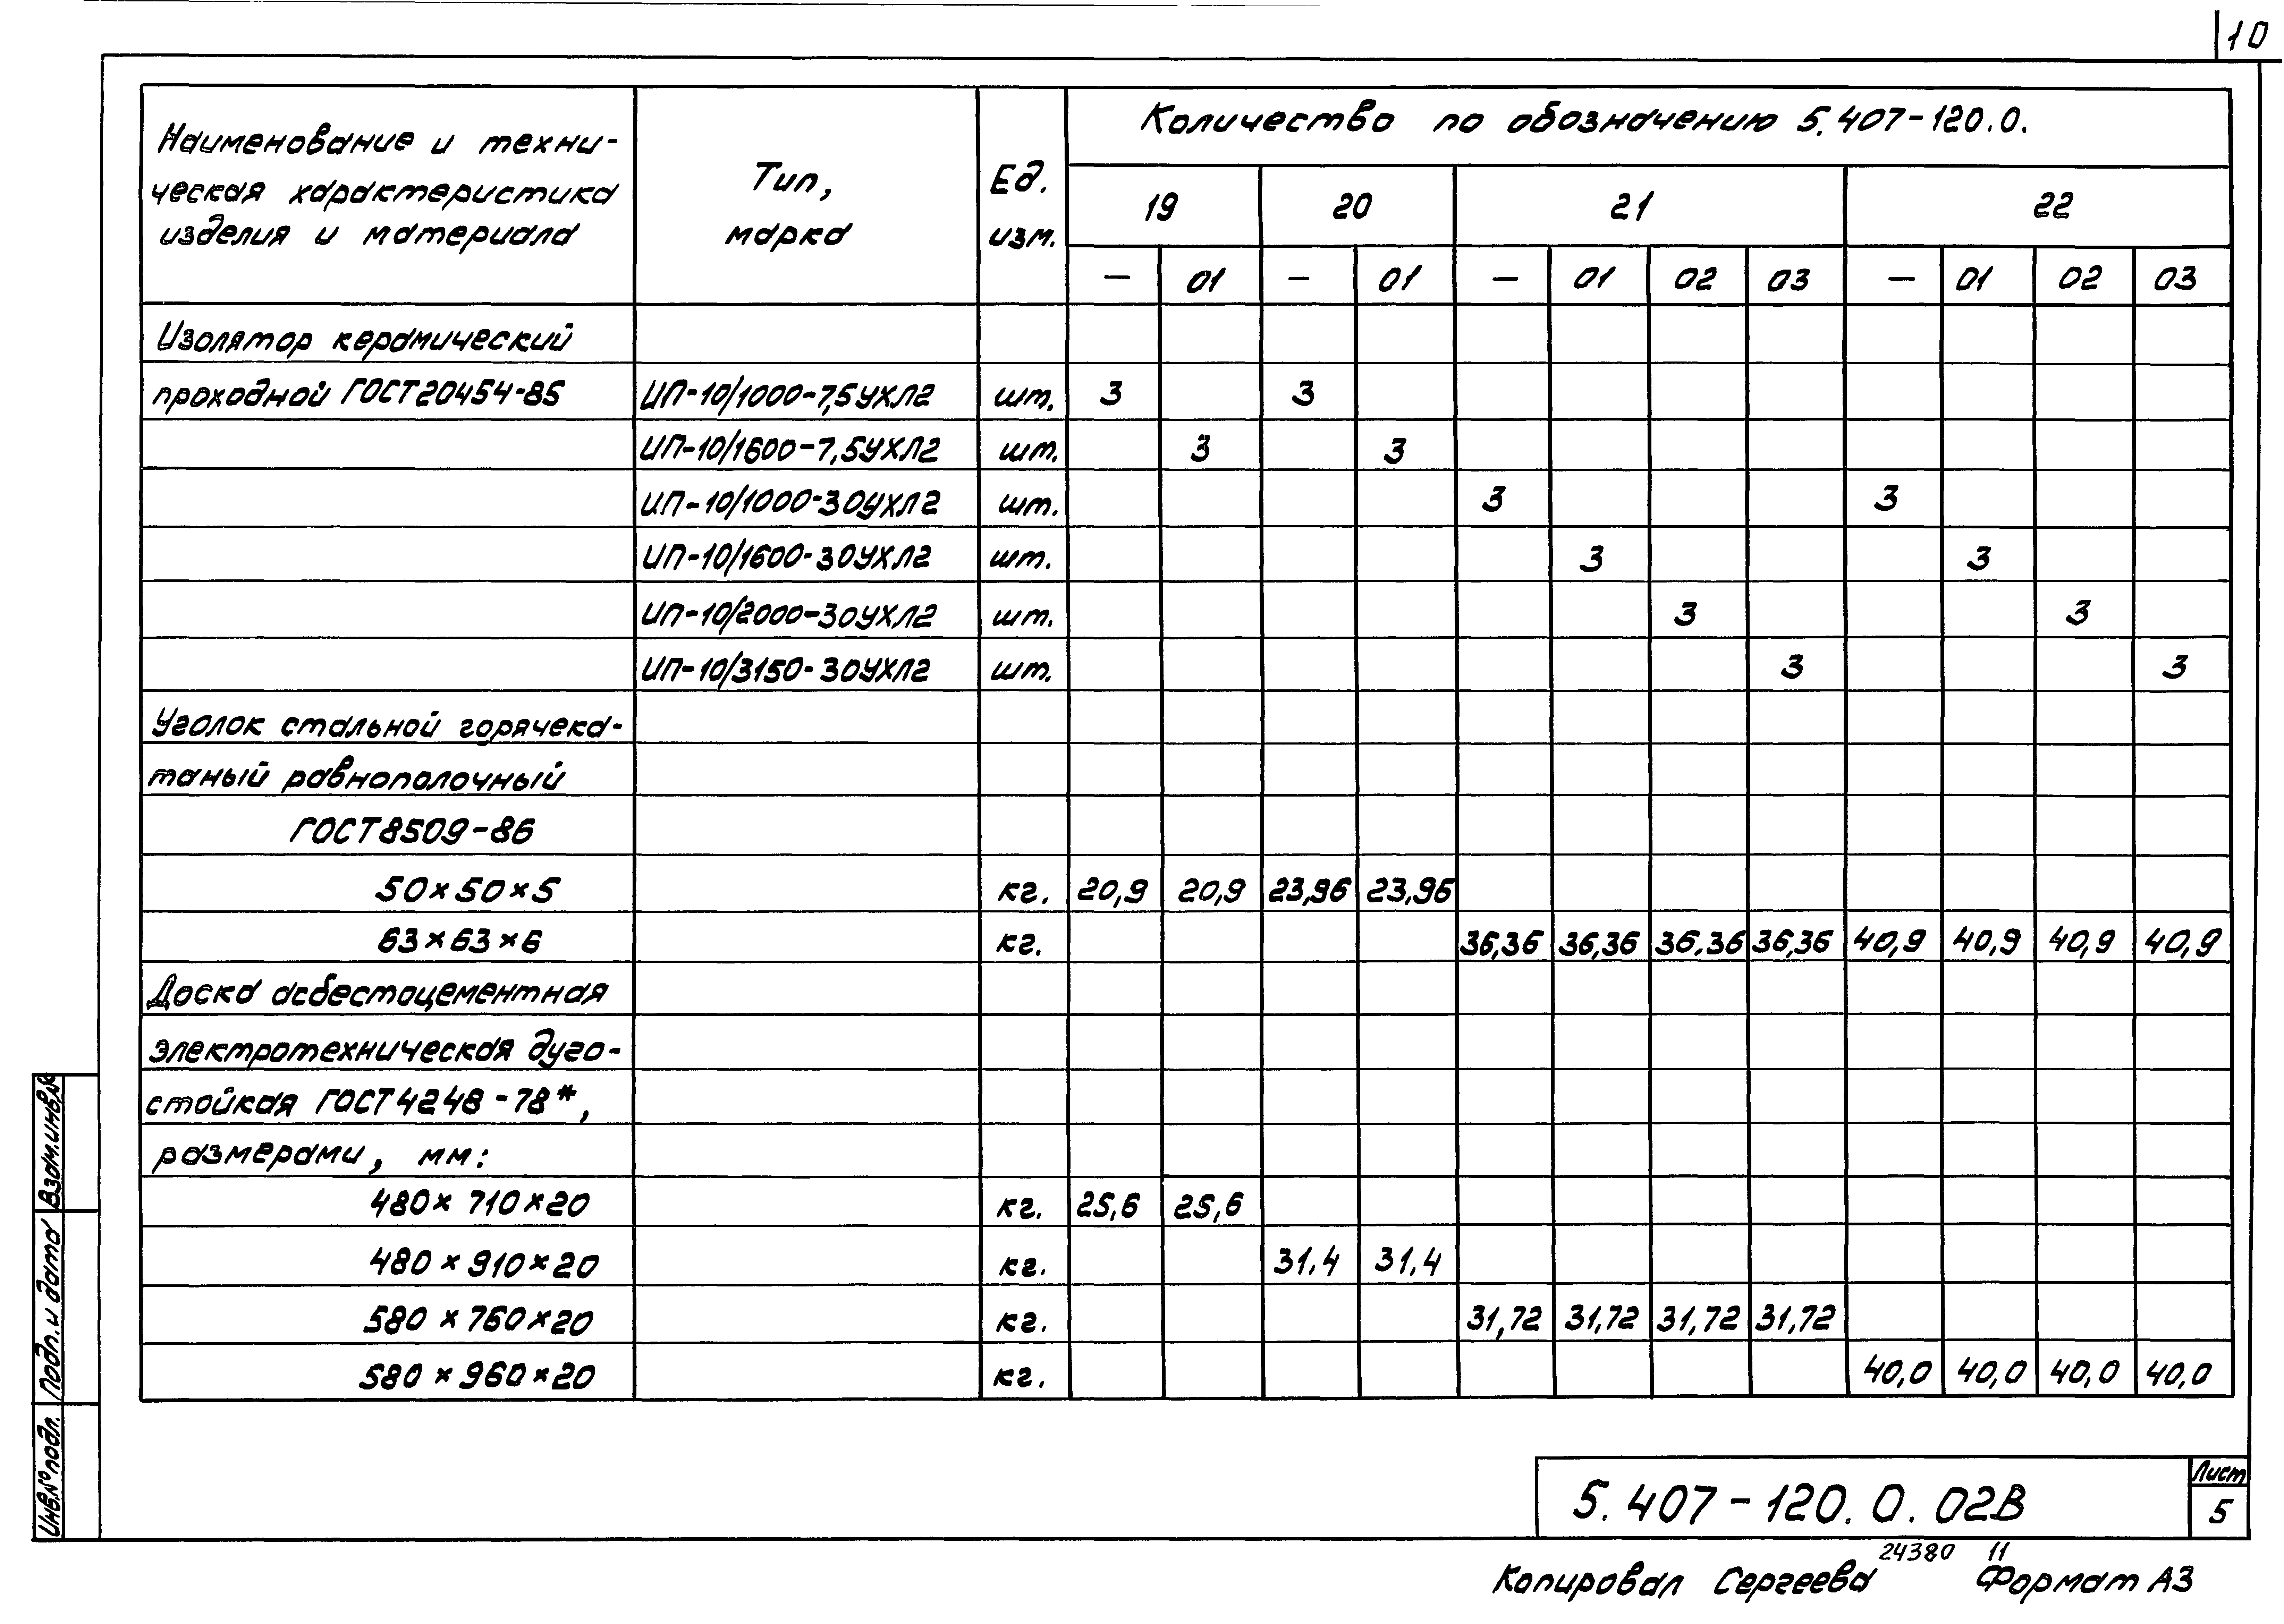 10
Наименование и техни-
ческая характеристика
изделия и материала
Тип,
марка
Ед.
изм.
Количество по обозначению 5.407-120.0.
19 20 21 22
— 01 — 01 — 01 02 03 — 01 02 03
Изолятор керамический
проходной ГОСТ20454-85 ИП-10/1000-7,5УХЛ2 шт. 3 3
ИП-10/1600-7,5УХЛ2 шт. 3 3
ИП-10/1000-30УХЛ2 шт. 3 3
ИП-10/1600-30УХЛ2 шт. 3 3
ИП-10/2000-30УХЛ2 шт. 3 3
ИП-10/3150-30УХЛ2 шт. 3 3
Уголок стальной горячека-
таный равнополочный
ГОСТ8509-86
50×50×5 кг. 20,9 20,9 23,96 23,96
63×63×6 кг. 36,36 36,36 36,36 36,36 40,9 40,9 40,9 40,9
Доска асбестоцементная
электротехническая дуго-
стойкая ГОСТ4248-78*,
размерами, мм:
480×710×20 кг. 25,6 25,6
480×910×20 кг. 31,4 31,4
580×760×20 кг. 31,72 31,72 31,72 31,72
580×960×20 кг. 40,0 40,0 40,0 40,0
Взам.инв.№
Подп. и дата
Инв.№подл.
5.407-120.0.02В
Лист
5
24380 11
Копировал Сергеева Формат А3